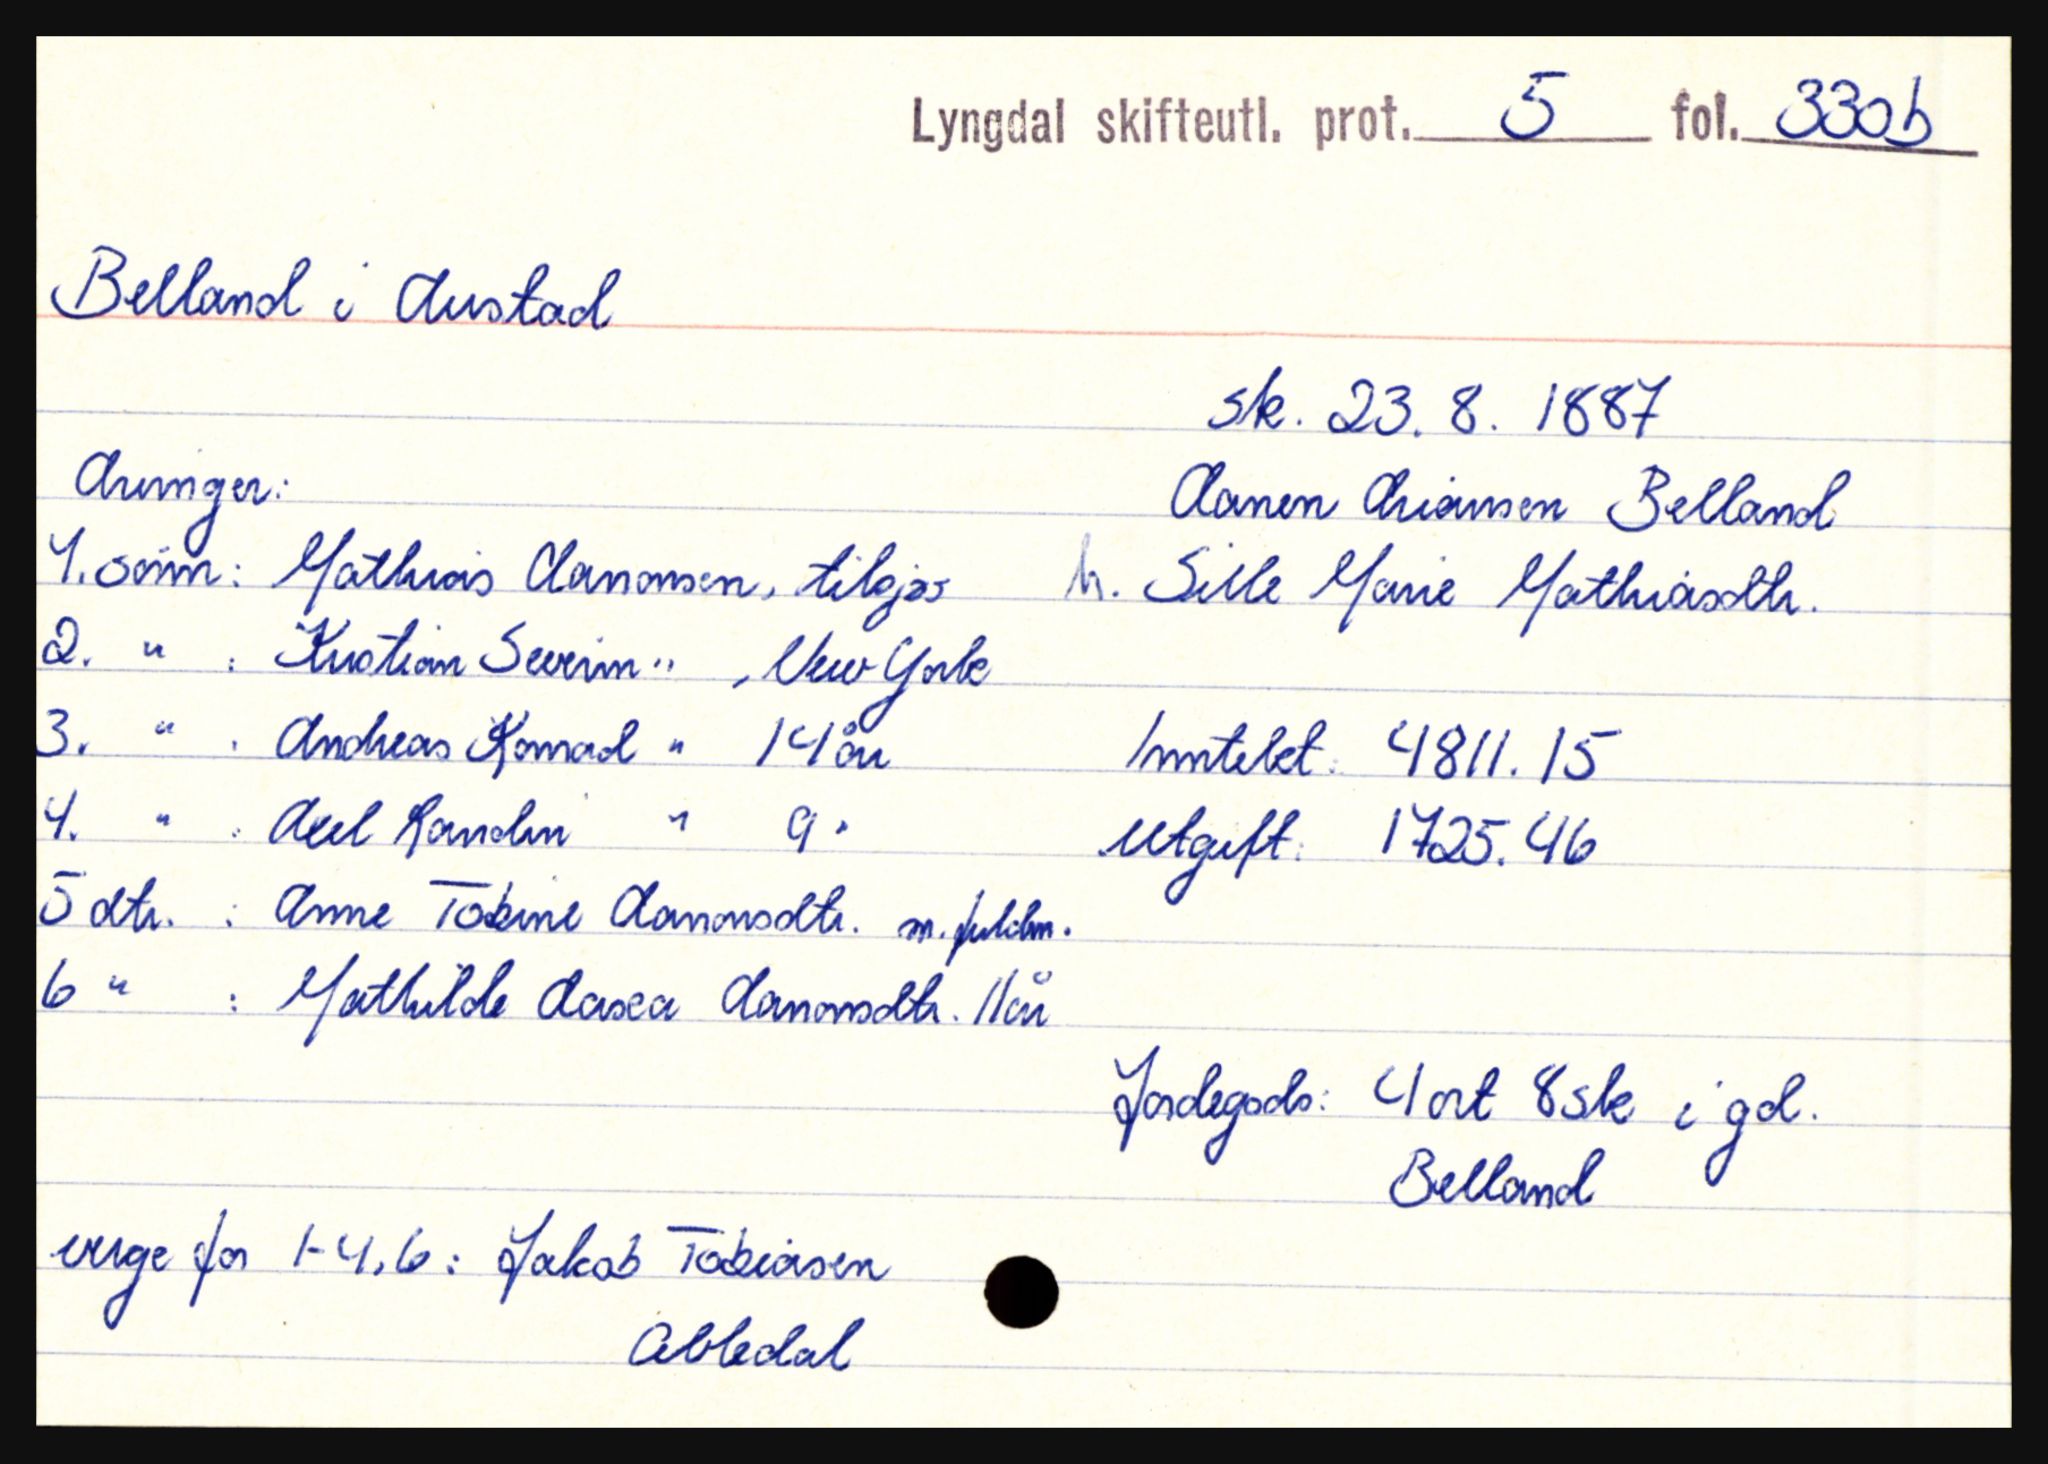 Lyngdal skifteutl. prot. 5 fol. 330b
Belland i Austad
sk. 23. 8. 1887
Aanen Arianson Belland
h. Sille Marie Mathiasdtr.
Arvinger:
1. sønn: Mathias Aanonsen, tilsjøs
2. " : Kristian Severin " , New York
3. " : Andreas Konrad " 14 år
4. " : Axel Randin " 9 "
5 dtr. : Anne Tobine Aanonsdtr. m. fuldm.
6 " : Mathilde Aasea Aanonsdtr. 11 år
Inntekt: 4811.15
Utgift: 1725.46
Jordegods: 4 ort 8 sk i gd.
Belland
verge for 1-4,6: Jakob Tobiasen
Abledal